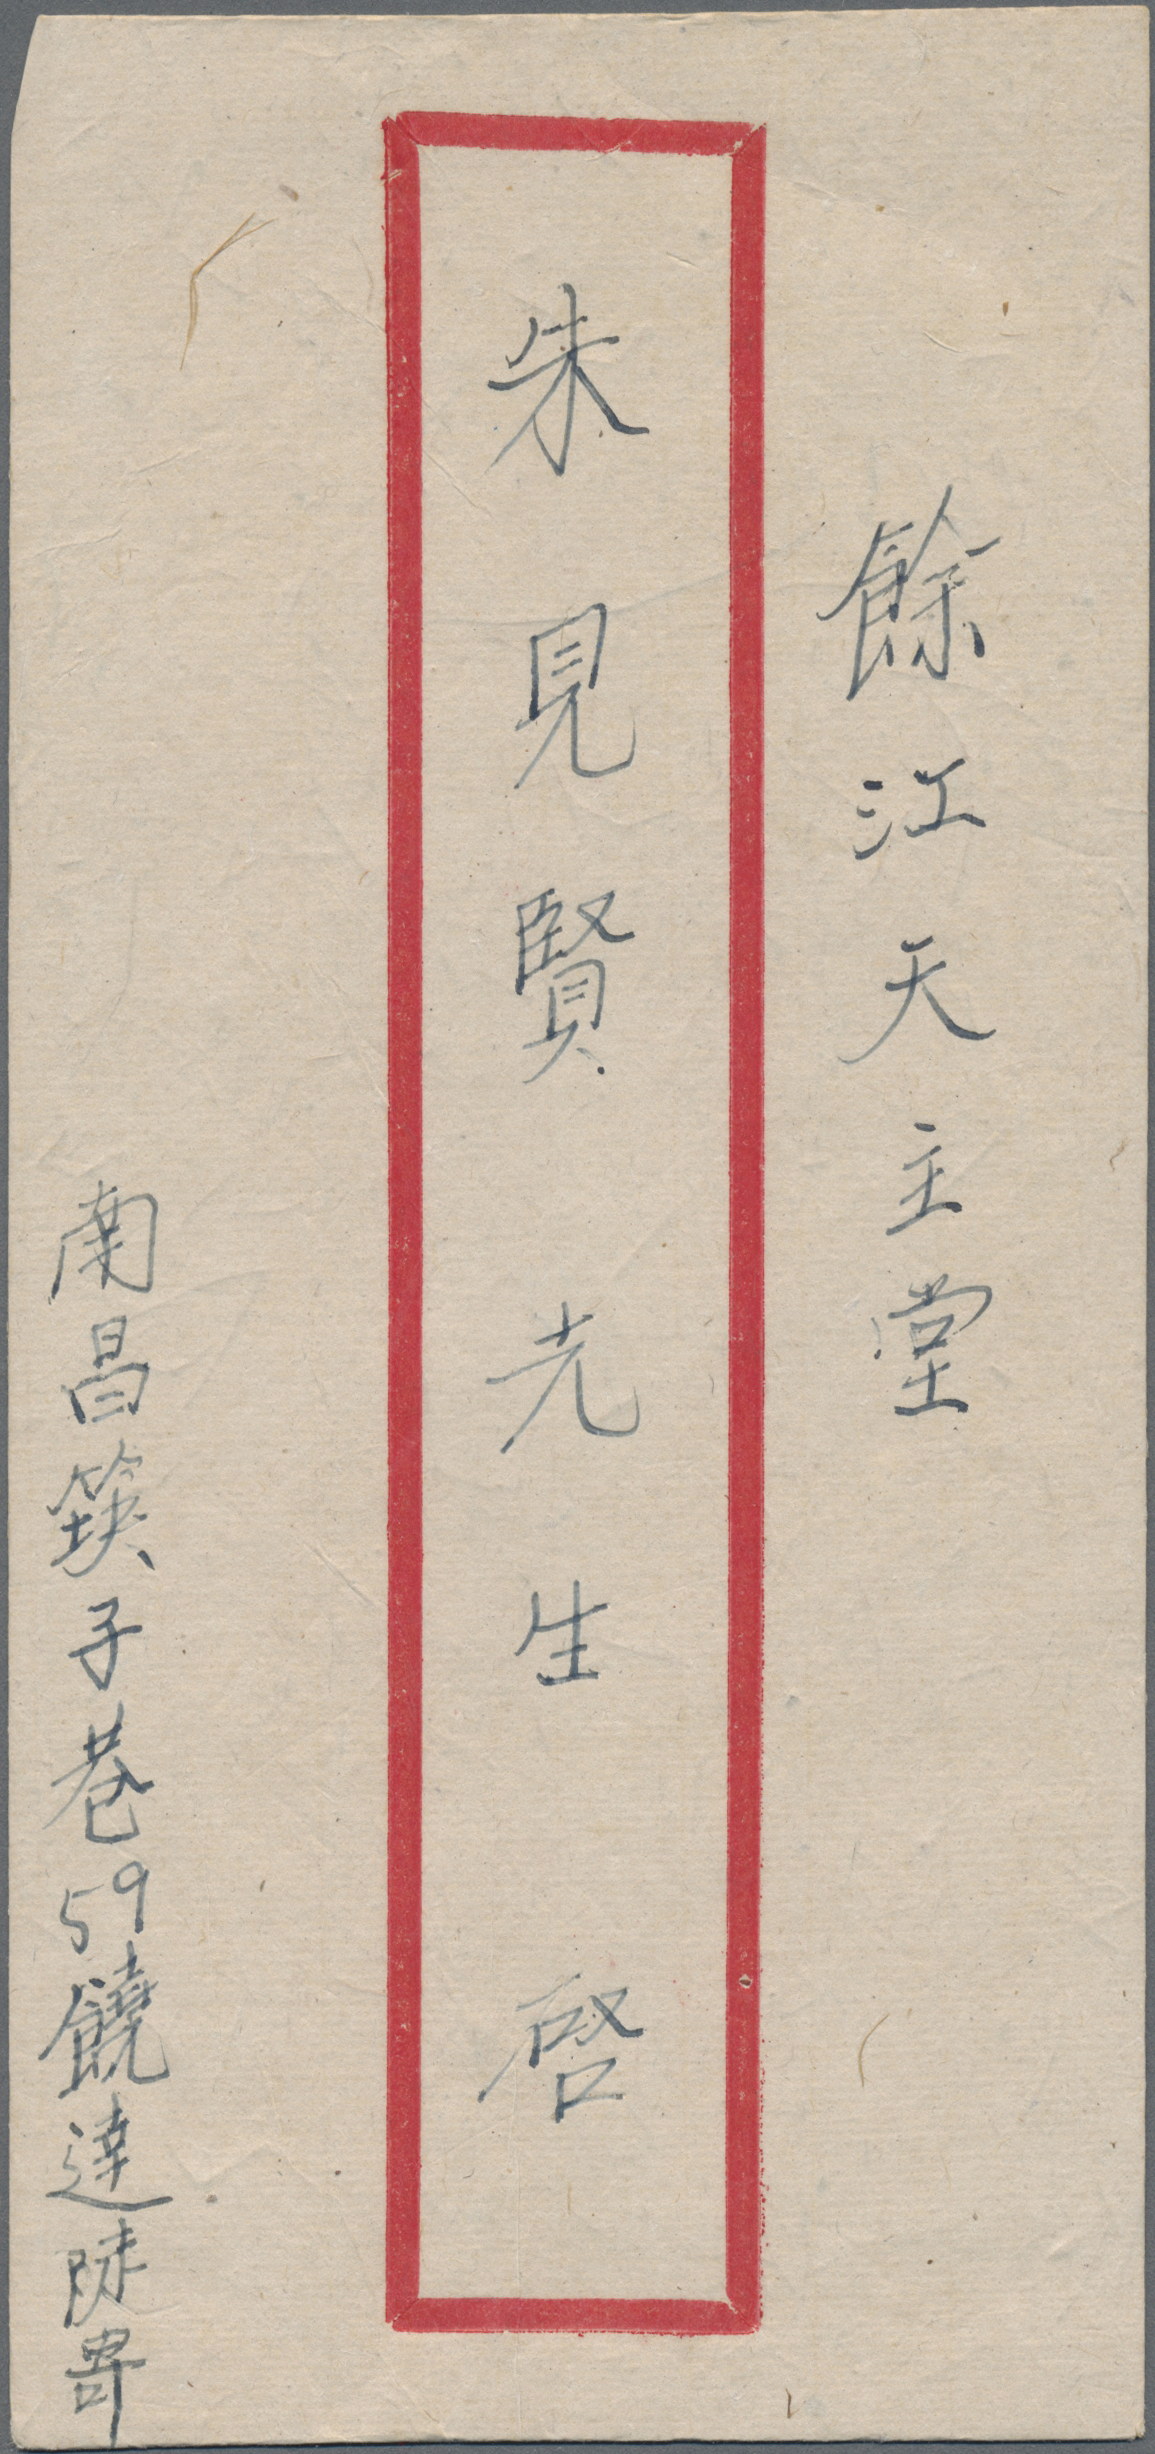 餘江天主堂
朱見賢先生 啓
南昌筷子巷59饒達陡寄